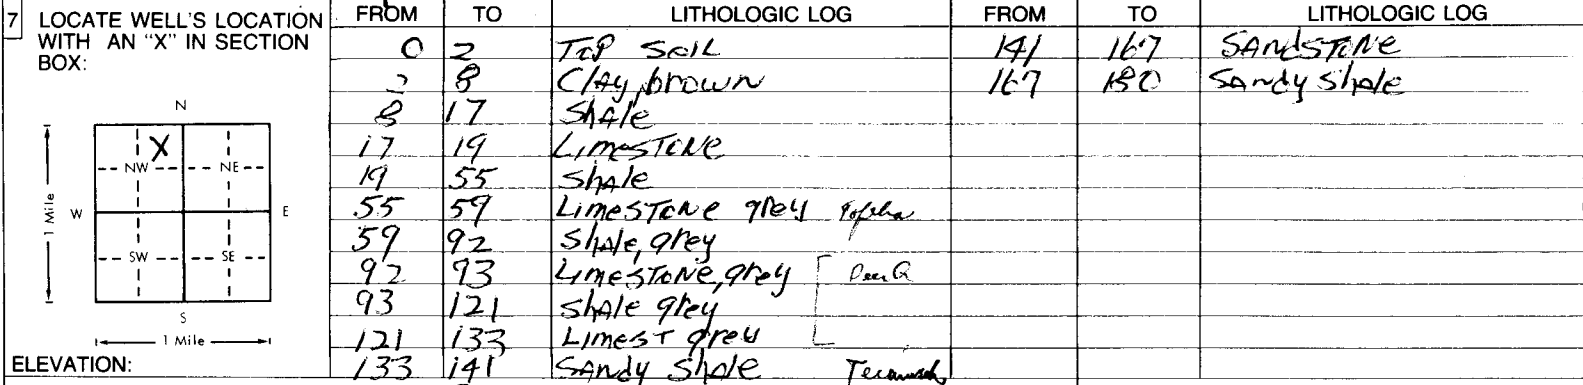 7 LOCATE WELL'S LOCATION WITH AN "X" IN SECTION BOX:
N
X
NW NE
W E
SW SE
S
1 Mile
1 Mile
ELEVATION:
FROM TO LITHOLOGIC LOG FROM TO LITHOLOGIC LOG
0 2 TOP SOIL 141 167 SANDSTONE
2 8 Clay, brown 167 180 Sandy Shale
8 17 Shale
17 19 LIMESTONE
19 55 Shale
55 59 LIMESTONE grey Topeka
59 92 Shale, grey
92 93 LIMESTONE, grey
93 121 Shale grey
121 133 LIMEST grey
133 141 SANDY Shale